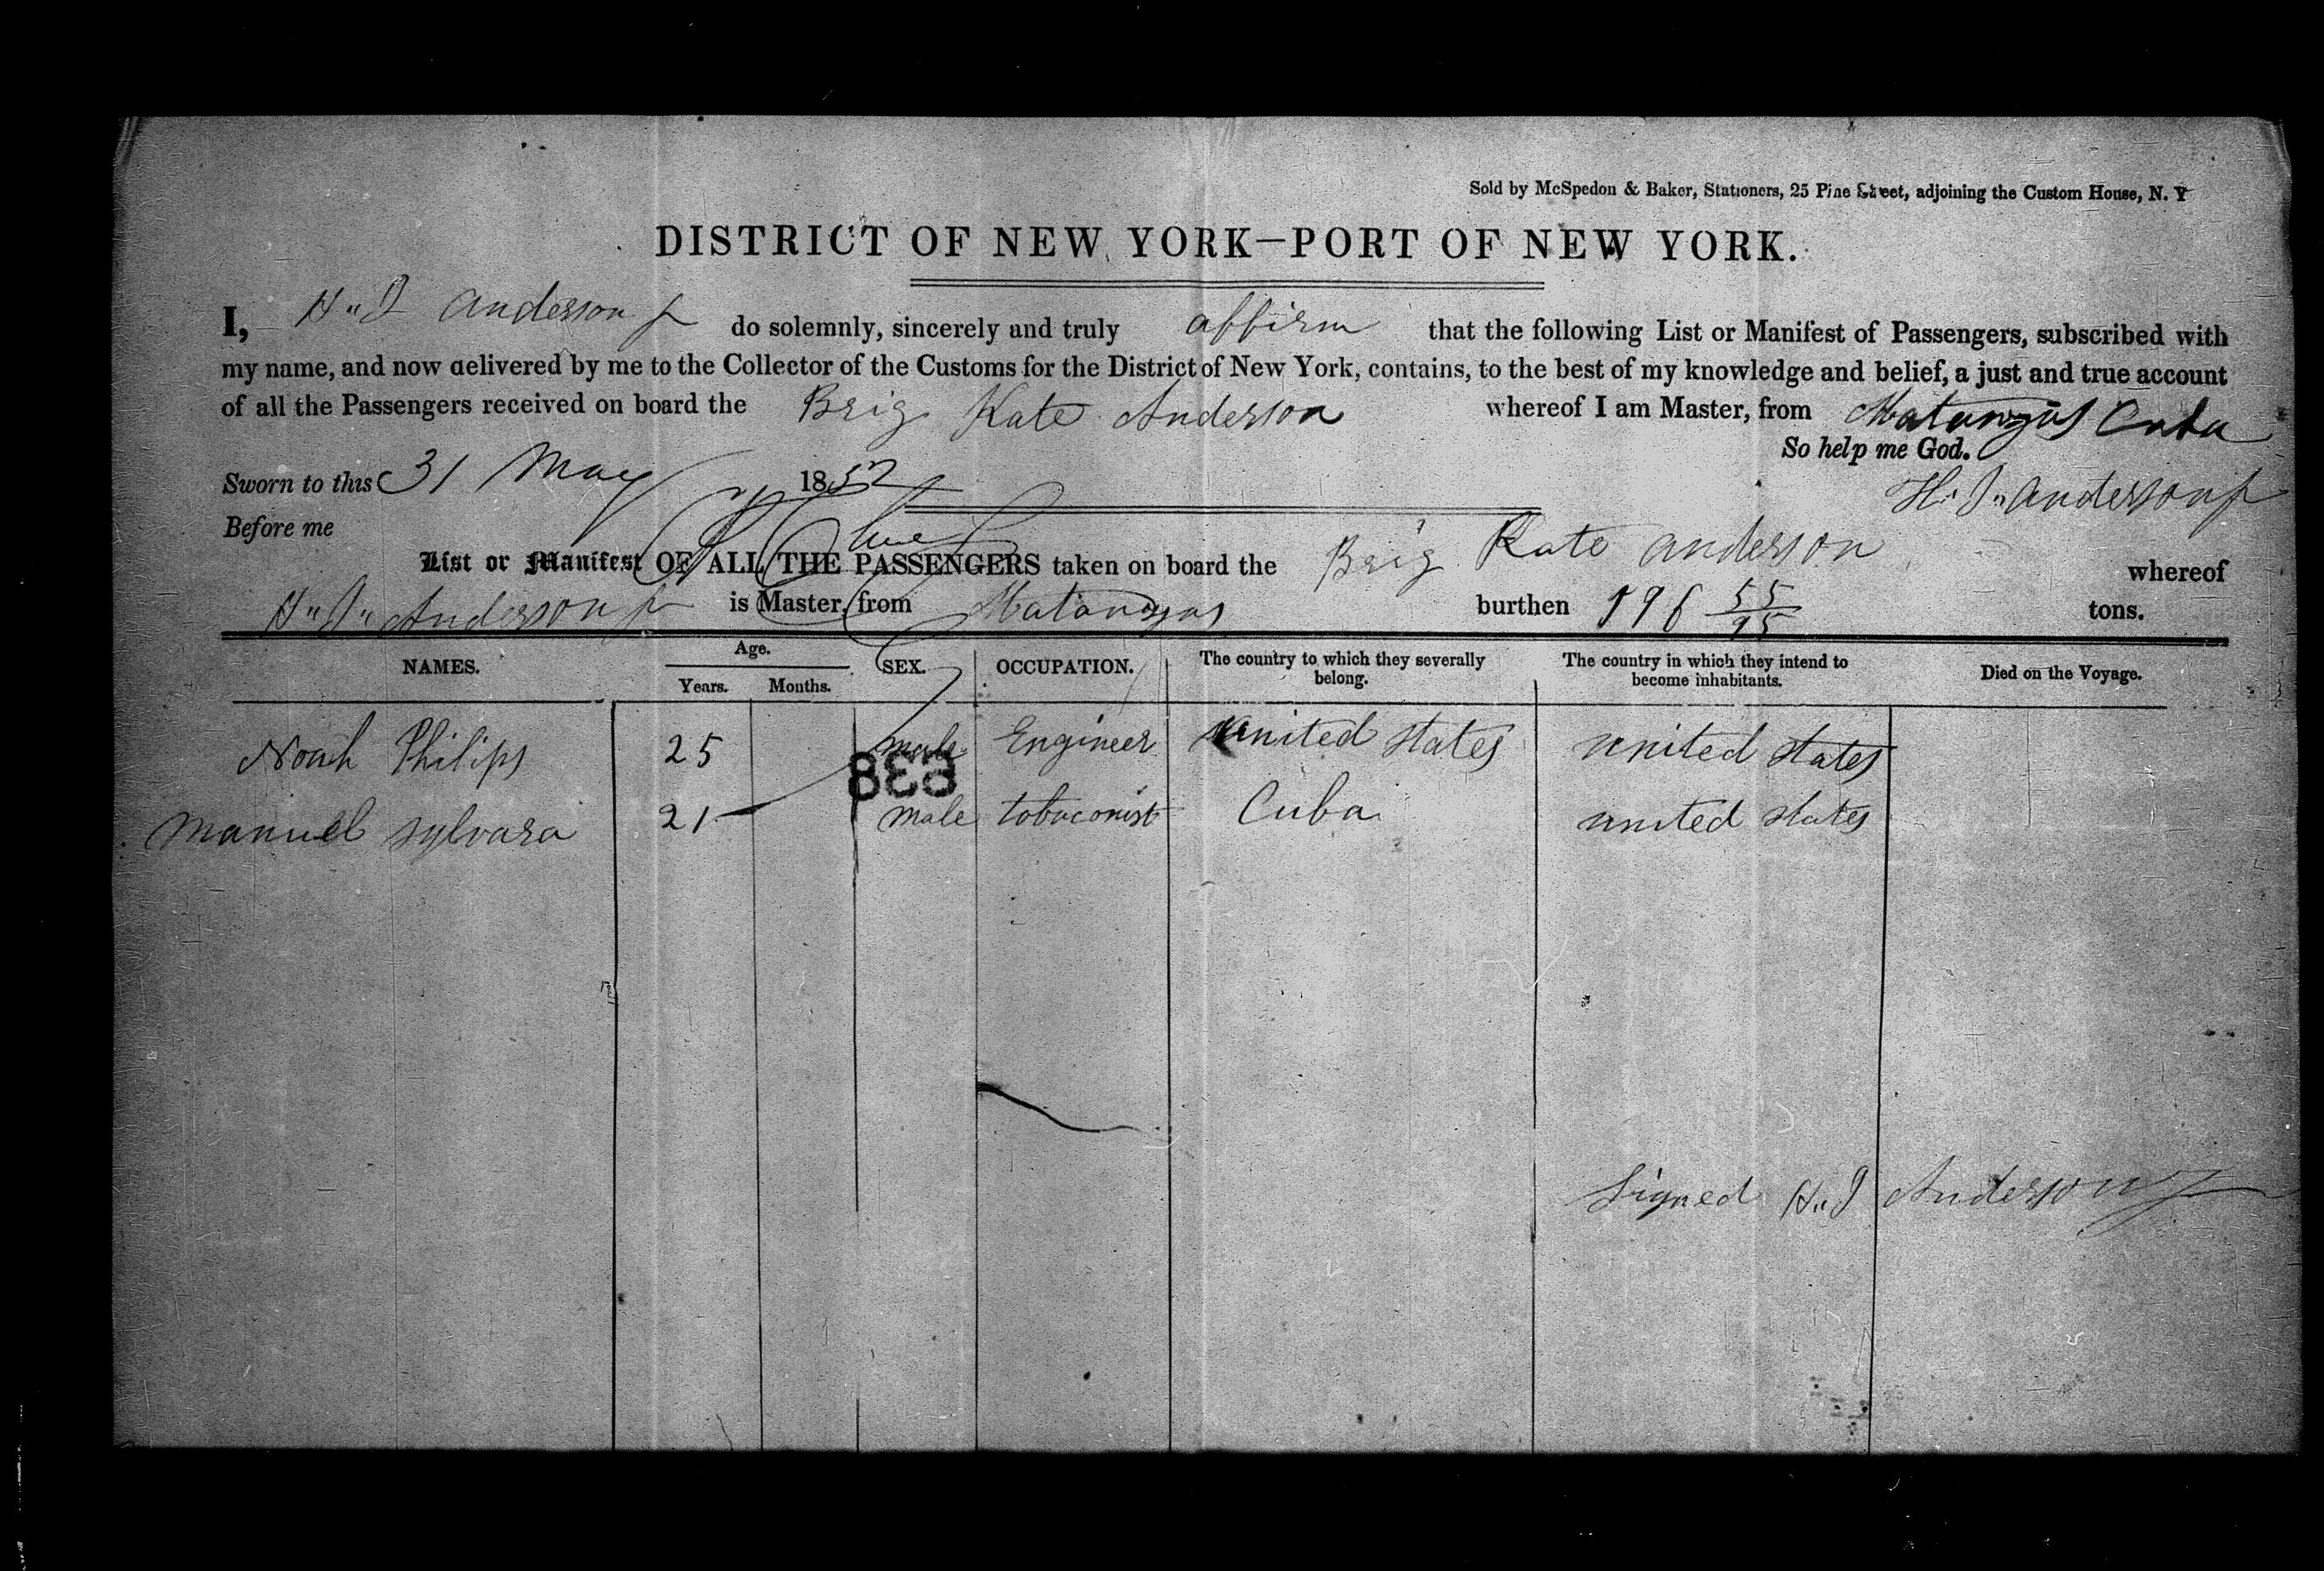 Sold by McSpedon & Baker, Stationers, 25 Pine Street, adjoining the Custom House, N. Y
DISTRICT OF NEW YORK—PORT OF NEW YORK.
I, H. J. Anderson do solemnly, sincerely and truly affirm that the following List or Manifest of Passengers, subscribed with
my name, and now delivered by me to the Collector of the Customs for the District of New York, contains, to the best of my knowledge and belief, a just and true account
of all the Passengers received on board the Brig Kate Anderson whereof I am Master, from Matanzas Cuba
So help me God.
Sworn to this 31 May 1852
H. J. Anderson
Before me
List or Manifest OF ALL THE PASSENGERS taken on board the Brig Kate anderson whereof
H. J. Anderson is Master, from Matanzas burthen 196 55/95 tons.
NAMES. Age. Years. Months. SEX. OCCUPATION. The country to which they severally belong. The country in which they intend to become inhabitants. Died on the Voyage.
Noah Philips 25 male Engineer united states united states
838
Manuel Sylvara 21 male tobaconist Cuba united states
Signed H. J Anderson